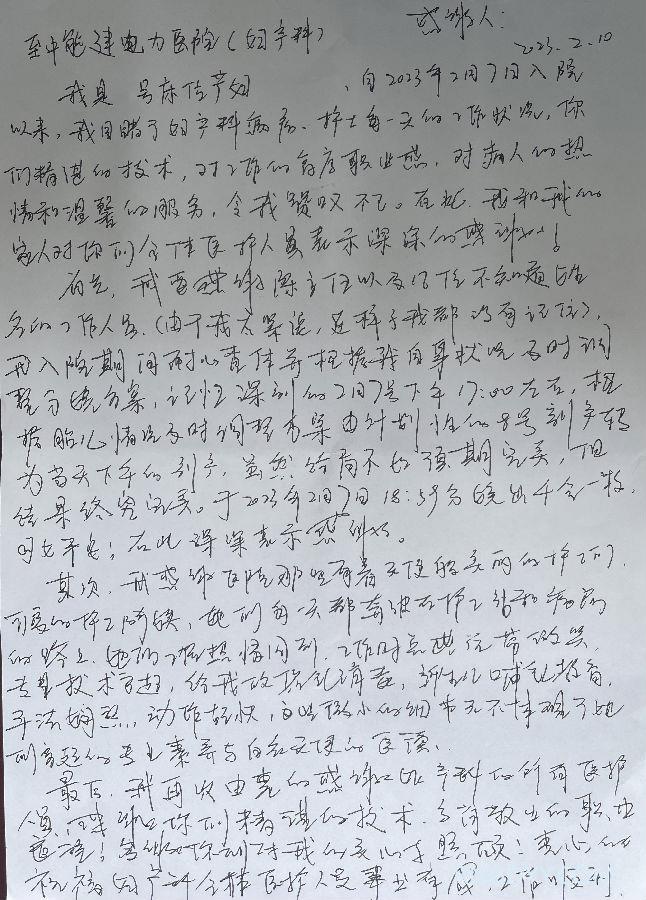 感谢人：
2023.2.10
至中能建电力医院（妇产科）
我是 号床位产妇 ，自2023年2月7日入院
以来，我目睹了妇产科病房、护士每一天的工作状况，你
们精湛的技术，对工作的高度职业感，对病人的热
情和温馨的服务，令我赞叹不已。在此，我和我的
家人对你们全体医护人员表示深深的感谢！
首先，我要感谢 主任以及几位不知道姓
名的工作人员，（由于我太紧张，连样子我都没有记住），
我入院期间耐心查体并根据我自身状况及时调
整分娩方案，记忆深刻的2月7号下午17:00左右，根
据胎儿情况及时调整方案由计划性的8号剖产转
为当天下午的剖产，虽然 预期完美，但
结果终究完美。于2023年2月7日18:59分娩出千金一枚，
母女平安；在此深深表示感谢。
其次，我感谢医院那些有着天使般美丽的护士们，
可爱的护士 ，她们每一天都奔波在护士站和病房
的路上，她们 热情周到，工作时总是 带微笑，
专业技术 ，给我的 消毒， 哺乳教育，
手法娴熟，动作轻快，这些微小的细节无不体现了她
们 的专业素养与白衣天使的医德。
最后，我再次由衷的感谢 产科的所有医护
人员，感谢你们精湛的技术、 的职业
道德！感谢你们对我的关心与照顾！衷心的
祝福妇产科全体医护人员事业有成，工作顺利